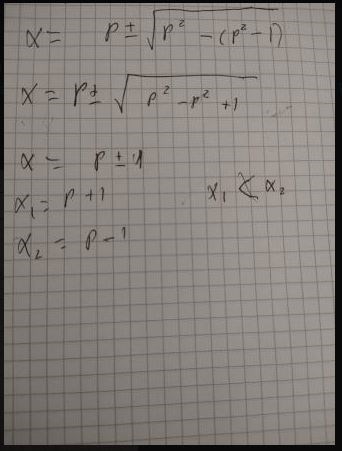 x = p ± √(p² - (p² - 1))
x = p ± √(p² - p² + 1)
x = p ± 1
x₁ = p + 1 x₁ < x₂
x₂ = p - 1